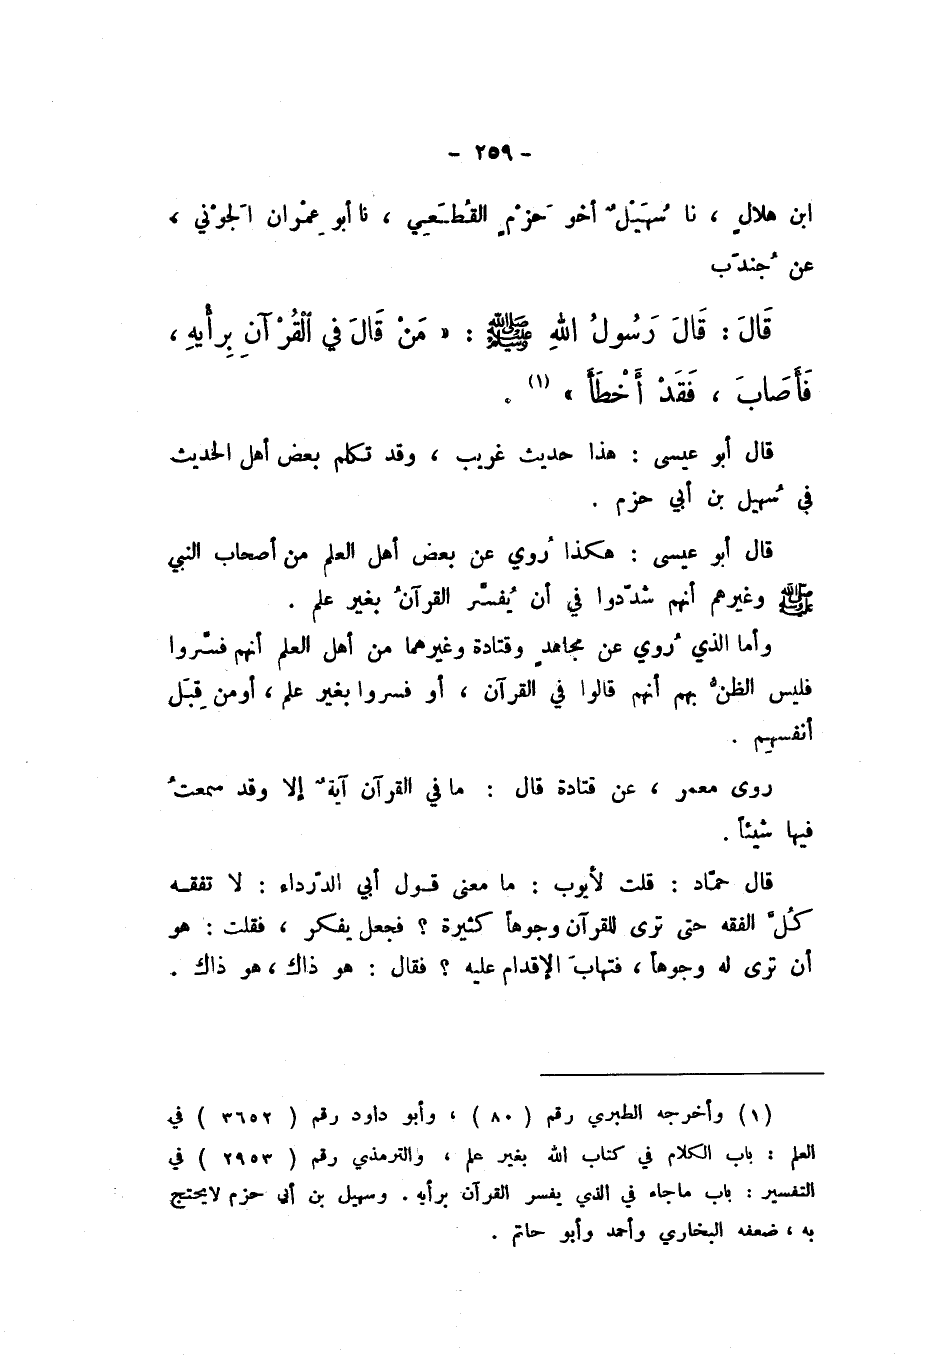 - ٢٥٩ -
ابن هلالٍ ، نا سُهَيْلٌ أخو حَزْمٍ القُطَعِي ، نا أبو عِمْران الجَوْني ،
عن جُندَب
قَالَ : قَالَ رَسُولُ اللهِ ﷺ : « مَنْ قَالَ فِي ٱلْقُرْآنِ بِرأْيهِ ،
فَأَصَابَ ، فَقَدْ أَخْطَأَ » (١) .
قال أبو عيسى : هذا حديث غريب ، وقد تكلم بعض أهل الحديث
في سُهيل بن أبي حزم .
قال أبو عيسى : هكذا رُوي عن بعض أهل العلم من أصحاب النبي
ﷺ وغيرهم أنهم شدّدوا في أن يُفسَّر القرآنُ بغير علم .
وأما الذي رُوي عن مجاهدٍ وقتادة وغيرهما من أهل العلم أنهم فسَّروا
فليس الظنُّ بهم أنهم قالوا في القرآن ، أو فسروا بغير علم ، أومن قِبَل
أنفسهم .
روى معمر ، عن قتادة قال : ما في القرآن آيةٌ إلا وقد سمعتُ
فيها شيئاً .
قال حمّاد : قلت لأيوب : ما معنى قول أبي الدّرداء : لا تفقه
كُلَّ الفقه حتى ترى للقرآن وجوهاً كثيرة ؟ فجعل يفكر ، فقلت : هو
أن ترى له وجوهاً ، فتهابَ الإقدام عليه ؟ فقال : هو ذاك ، هو ذاك .
(١) وأخرجه الطبري رقم ( ٨٠ ) ، وأبو داود رقم ( ٣٦٥٢ ) في
العلم : باب الكلام في كتاب الله بغير علم ، والترمذي رقم ( ٢٩٥٣ ) في
التفسير : باب ماجاء في الذي يفسر القرآن برأيه . وسهيل بن أبي حزم لايحتج
به ، ضعفه البخاري وأحمد وأبو حاتم .